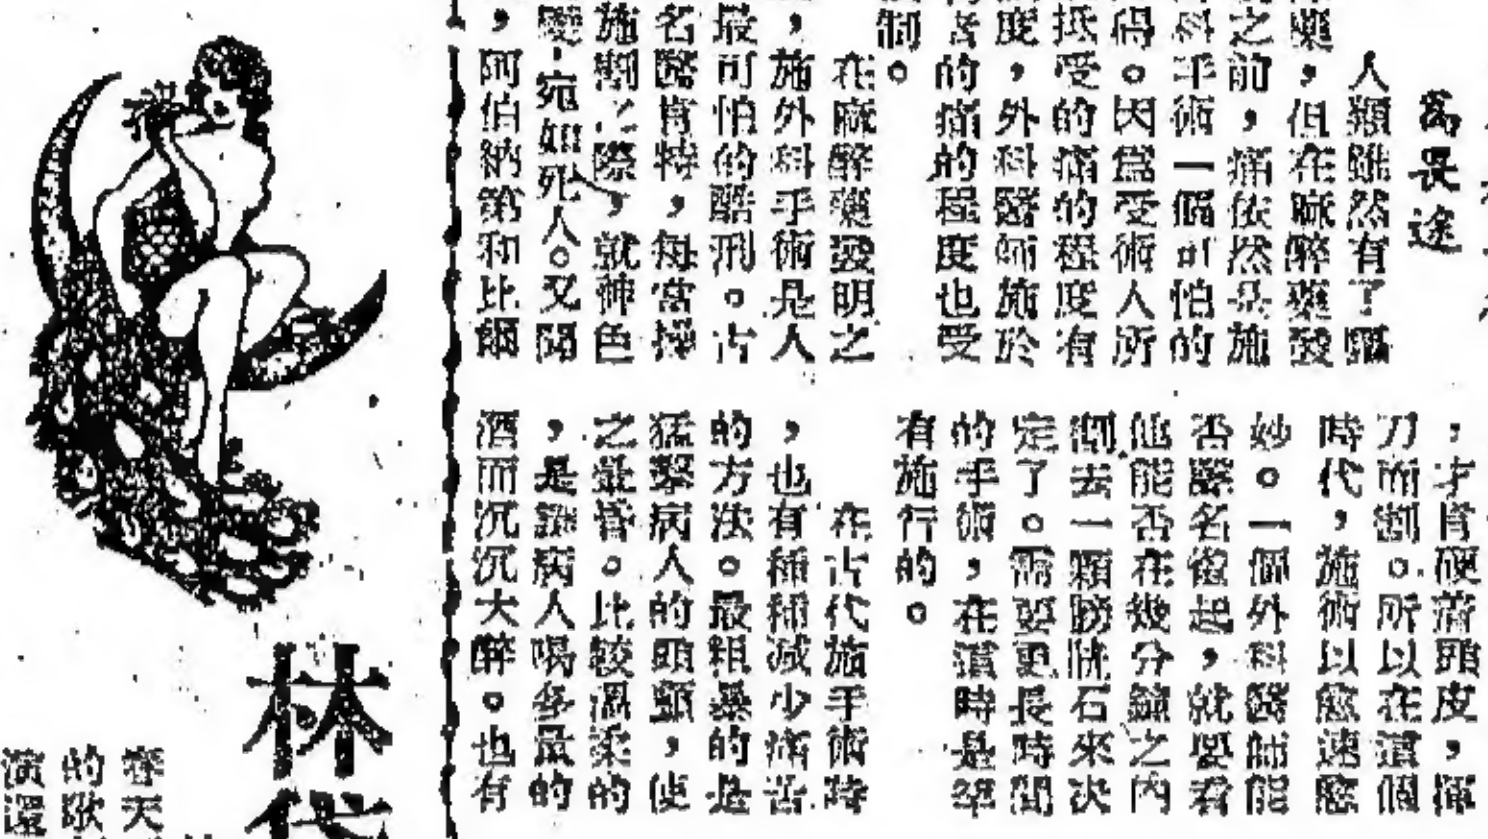 萬畏途
人類雖然有了
藥，但在麻醉藥發
之前，痛依然是施
科手術一個可怕的
得。因為受術人所
抵受的痛的程度有
度，外科醫師施於
者的痛的程度也受
制。
在麻醉藥發明之
，施外科手術是人
最可怕的酷刑。古
名醫肯特，每當操
施割之際，就神色
變，宛如死人。又聞
，阿伯納第和比爾
，才肯硬着頭皮，揮
刀而割。所以在這個
時代，施術以愈速愈
妙。一個外科醫師能
否醫名鵲起，就要看
他能否在幾分鐘之內
割去一顆膀胱石來決
定了。需要更長時間
的手術，在這時是罕
有施行的。
在古代施手術時
，也有種種減少痛苦
的方法。最粗暴的是
猛擊病人的頭顱，使
之暈昏。比較溫柔的
，是讓病人喝多量的
酒而沉沉大醉。也有
林
春天
的歌
演還